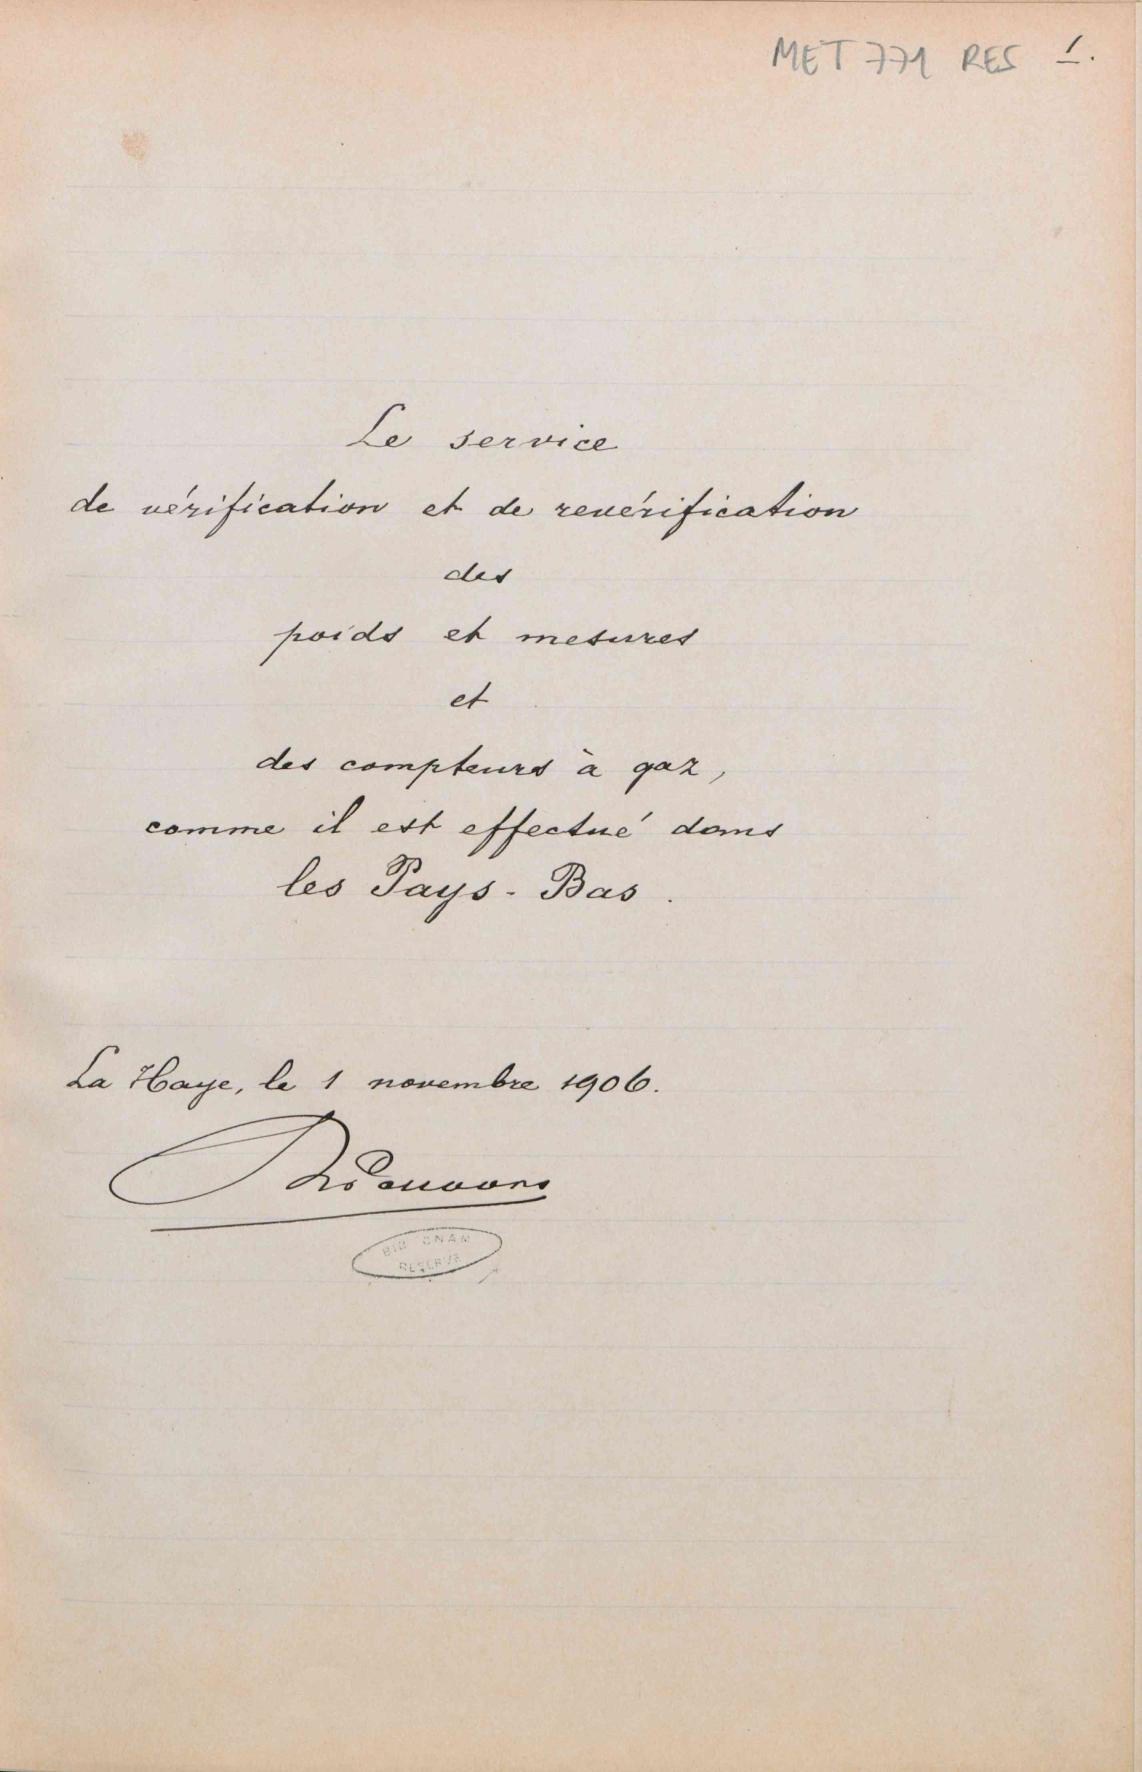 MET 771 RES 1.
Le service
de vérification et de revérification
des
poids et mesures
et
des compteurs à gaz,
comme il est effectué dans
les Pays-Bas.
La Haye, le 1 novembre 1906.
BIB CNAM
RESERVE